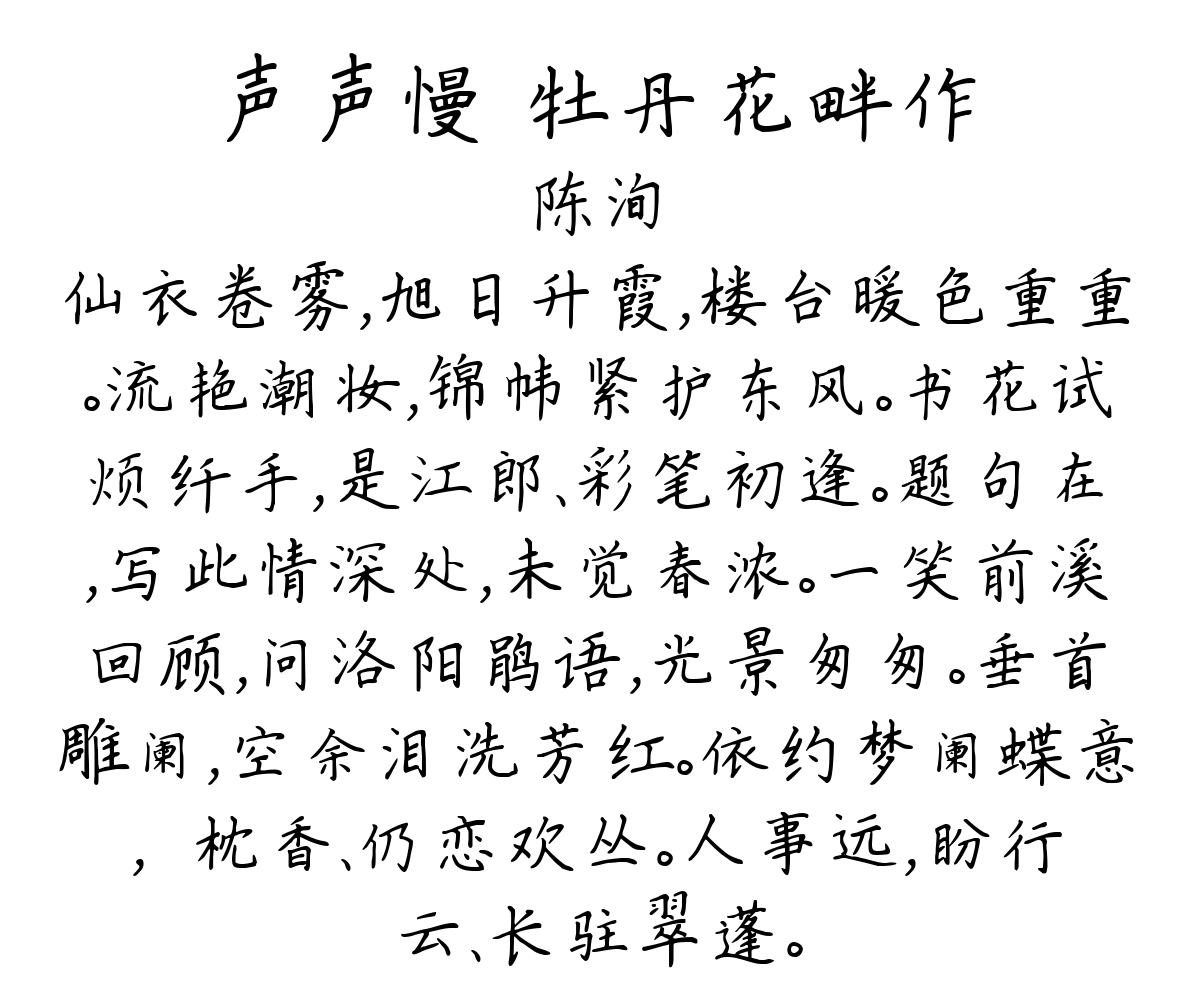 声声慢 牡丹花畔作
陈洵
仙衣卷雾,旭日升霞,楼台暖色重重
。流艳潮妆,锦帏紧护东风。书花试
烦纤手,是江郎、彩笔初逢。题句在
,写此情深处,未觉春浓。一笑前溪
回顾,问洛阳鹃语,光景匆匆。垂首
雕阑,空余泪洗芳红。依约梦阑蝶意
,枕香、仍恋欢丛。人事远,盼行
云、长驻翠蓬。